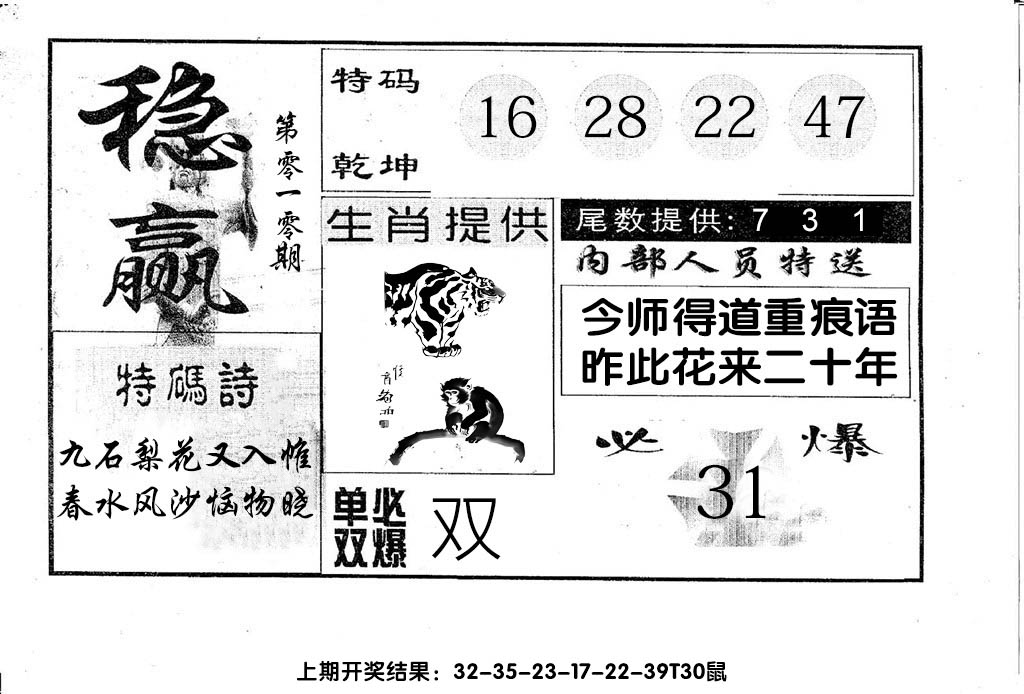 稳赢
第零一零期
特码
乾坤
16 28 22 47
生肖提供
尾数提供: 7 3 1
内部人员特送
今师得道重痕语
昨此花来二十年
特碼詩
九石梨花又入帷
春水风沙恼物晓
必爆
31
单双必爆
双
上期开奖结果：32-35-23-17-22-39T30鼠